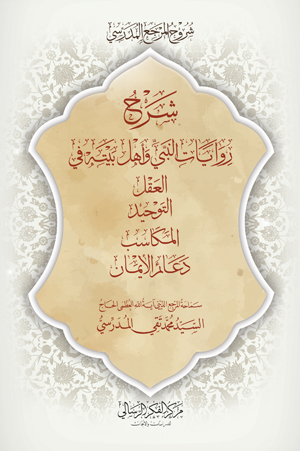 شروح المرجع المدرسي
شرح
روايات النبي وأهل بيته في
العقل
التوحيد
المكاسب
دعائم الإيمان
سماحة المرجع الديني آية الله العظمى الحاج
السيد محمد تقي المدرسي
مركز الفكر الرسالي
للدراسات والأبحاث